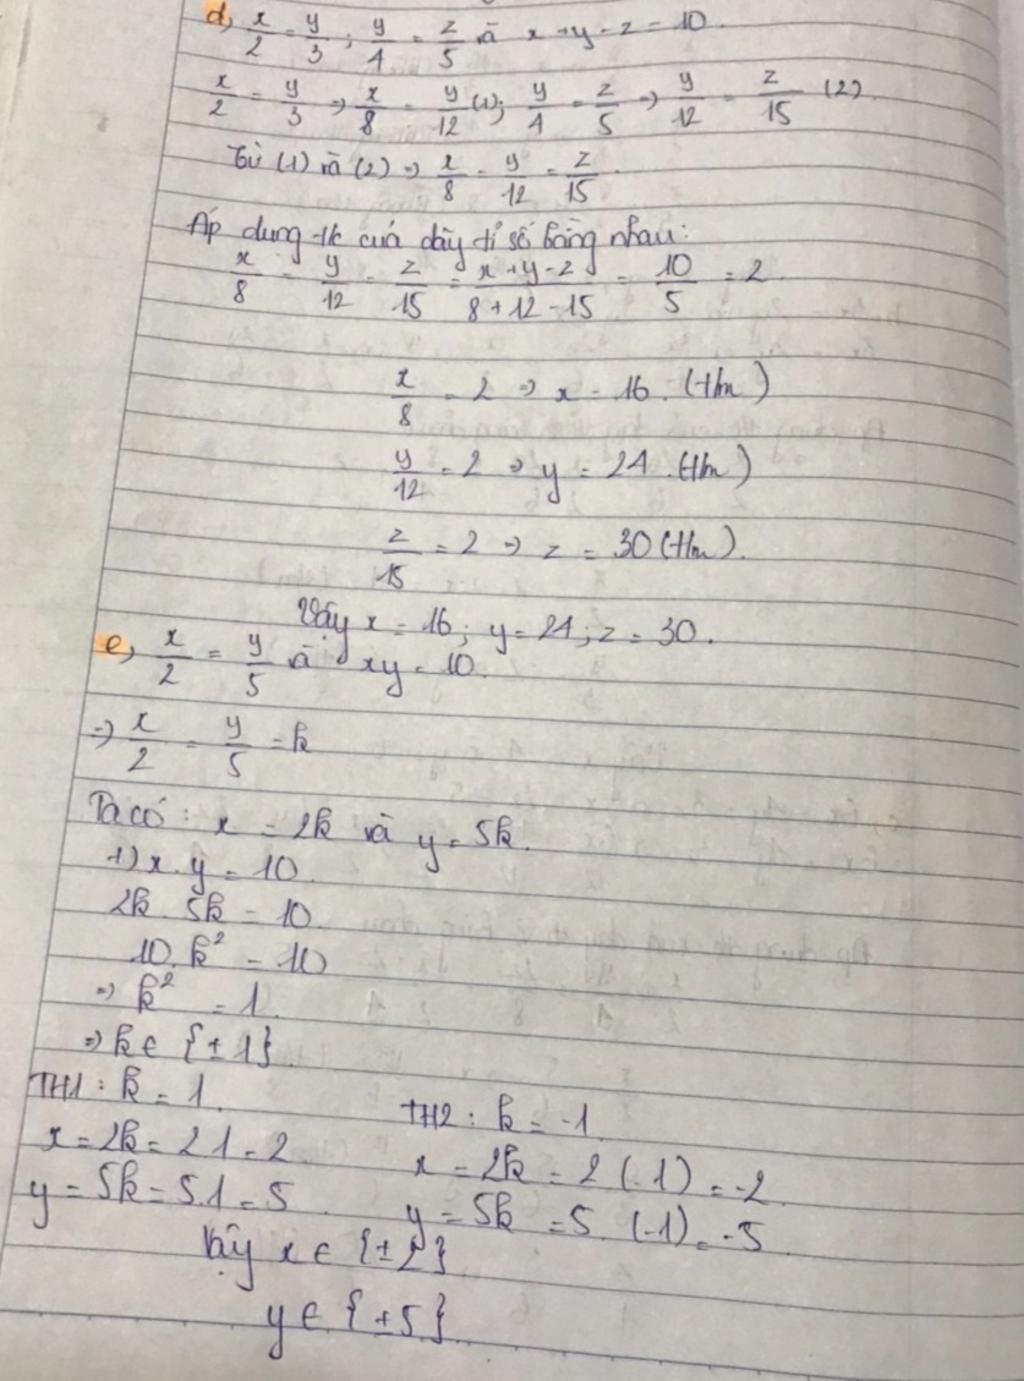 d, x/2 = y/3 ; y/4 = z/5 và x + y - z = 10.
x/2 = y/3 => x/8 = y/12 (1); y/4 = z/5 => y/12 = z/15 (2)
Từ (1) và (2) => x/8 = y/12 = z/15.
Áp dụng t/c của dãy tỉ số bằng nhau:
x/8 = y/12 = z/15 = x+y-z / 8+12-15 = 10/5 = 2
x/8 = 2 => x = 16. (thm)
y/12 = 2 => y = 24. (thm)
z/15 = 2 => z = 30 (thm).
Vậy x = 16; y = 24; z = 30.
e, x/2 = y/5 và xy = 10.
=> x/2 = y/5 = k
Ta có: x = 2k và y = 5k.
+) x.y = 10.
2k. 5k = 10.
10.k² = 10
=> k² = 1.
=> k ∈ {±1}
TH1: k = 1.
x = 2k = 2.1 = 2
y = 5k = 5.1 = 5
TH2: k = -1
x = 2k = 2.(-1) = -2
y = 5k = 5.(-1) = -5
Vậy x ∈ {±2}
y ∈ {±5}